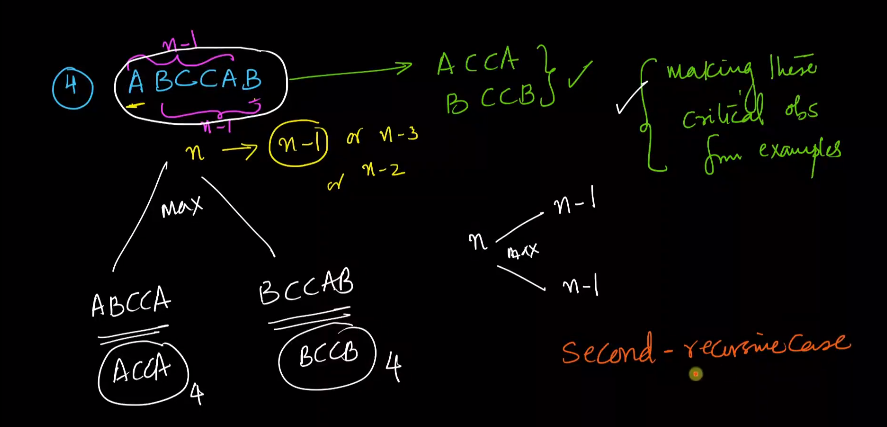 n-1
4
A B C C A B
n-1
A C C A
B C C B
making these
critical obs
from examples
n → n-1 or n-3
or n-2
max
n
n-1
max
n-1
ABCCA
BCCAB
ACCA
4
BCCB
4
Second - recursive case